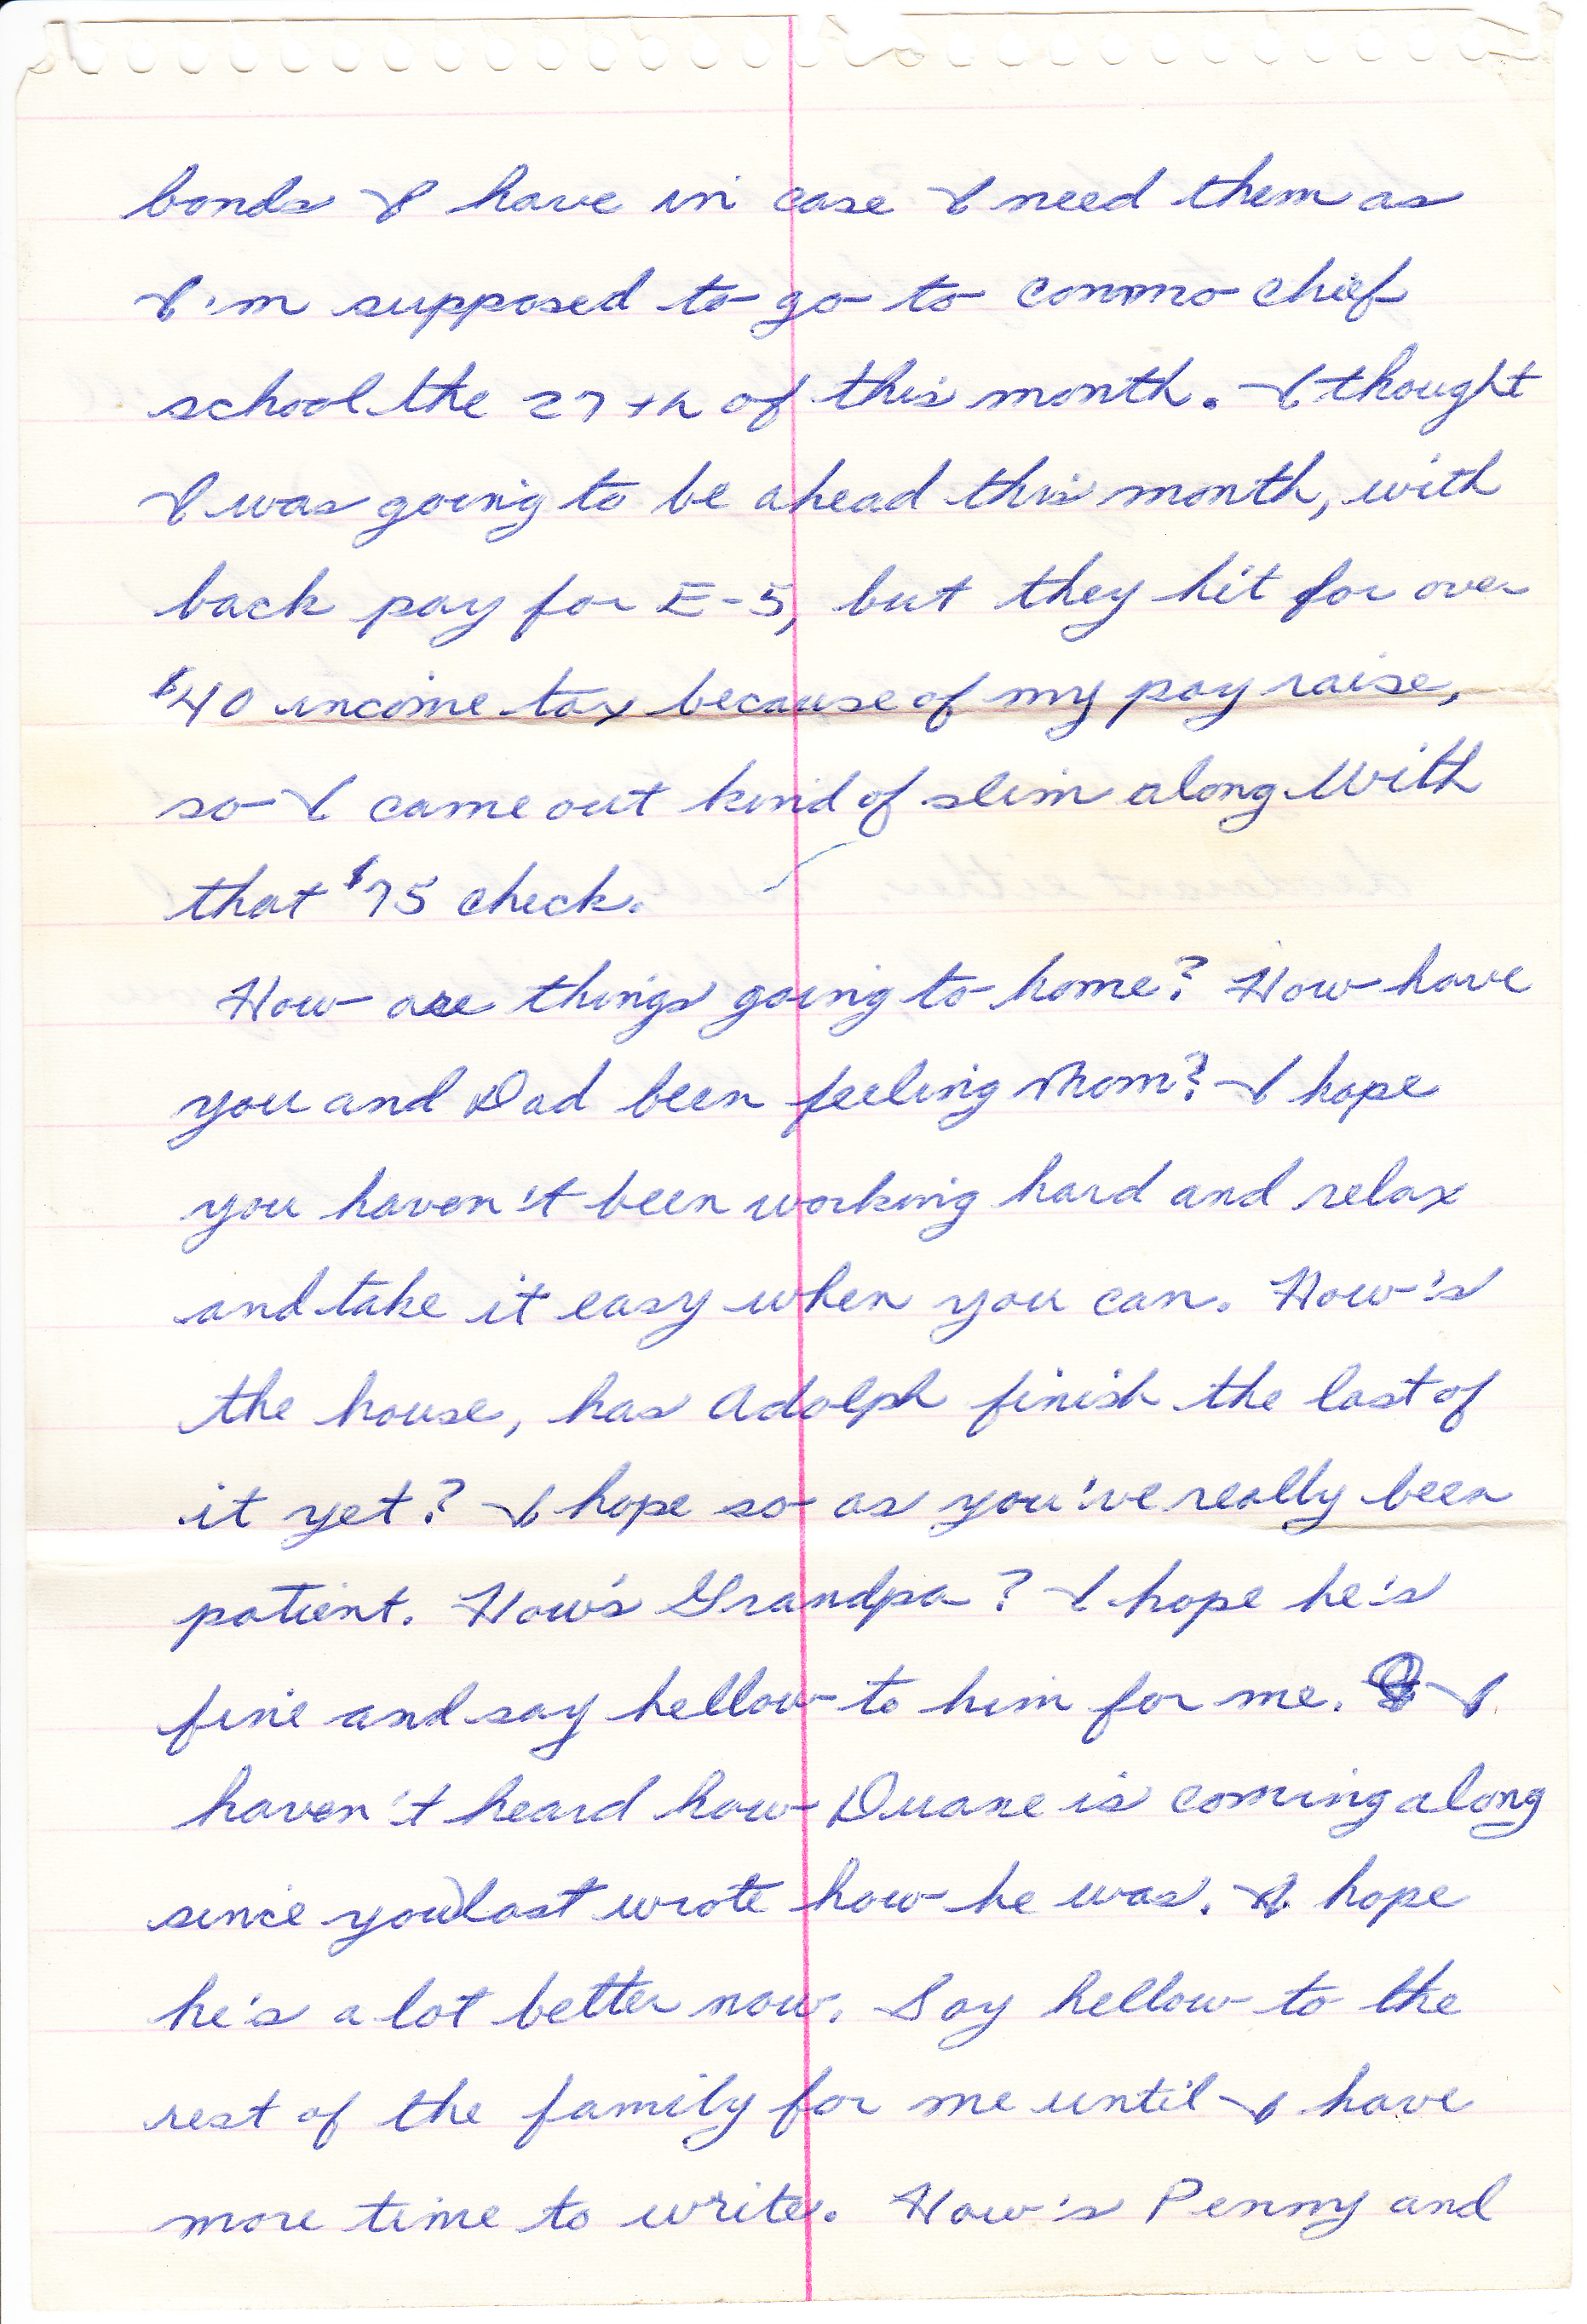 bonds I have in case I need them as
I'm supposed to go to commo chief
school the 27th of this month. I thought
I was going to be ahead this month, with
back pay for E-5, but they hit for over
$40 income tax because of my pay raise,
so I came out kind of slim along with
that $75 check.
How are things going to home? How have
you and Dad been feeling Mom? I hope
you haven't been working hard and relax
and take it easy when you can. How's
the house, has Adolph finish the last of
it yet? I hope so as you've really been
patient. How's Grandpa? I hope he's
fine and say hellow to him for me. I
haven't heard how Duane is coming along
since you last wrote how he was. I hope
he's a lot better now. Say hellow to the
rest of the family for me until I have
more time to write. How's Penny and